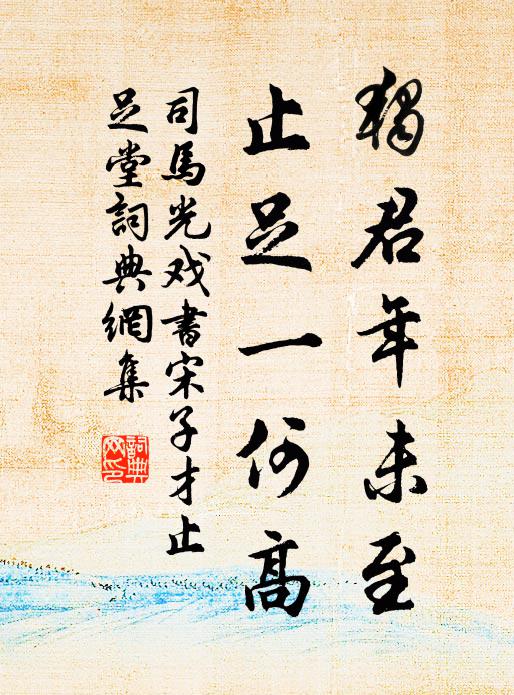 獨君年未至
止足一何高
司馬光戏書宋子才止
足堂詞典網集
詞典
网印